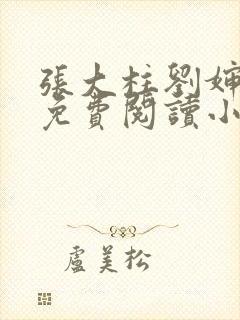 張大柱劉嬸
免費閱讀小
盧美松